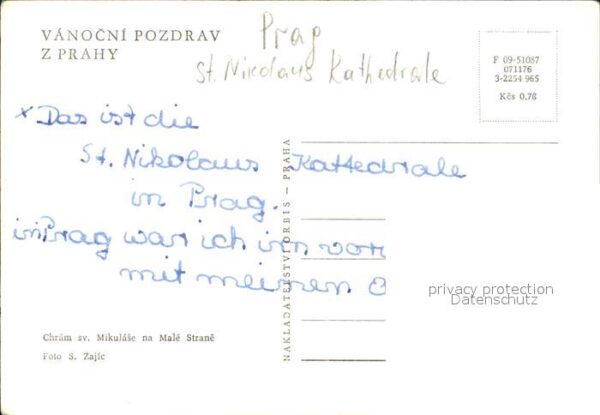 VÁNOČNÍ POZDRAV
Z PRAHY
Prag
St. Nikolaus Kathedrale
F 09-51087
071176
3-2254 965
Kčs 0,78
x Das ist die
St. Nikolaus Kathedrale
in Prag.
in Prag war ich im vor
mit meinen
privacy protection
Datenschutz
NAKLADATELSTVÍ ORBIS – PRAHA
Chrám sv. Mikuláše na Malé Straně
Foto S. Zajíc